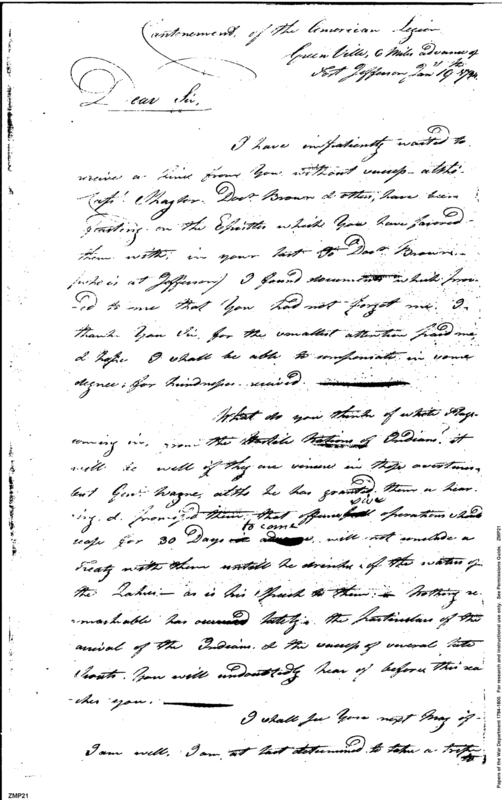 Cantonement of the American Legion
Green Ville, 6 Miles advance of
Fort Jefferson, Jany 19th 1794.
Dear Sir,
I have impatiently waited to
receive a line from You without success altho
Capt. Doctr Brown & others, have been
feasting on the Epistles which You have favored
them with, in your last to Doctr Brown
(who is at Jefferson) I found documents which prov-
ed to me that You had not forgot me. I
thank You Sir, for the smallest attention paid me,
& hope I shall be able to compensate in some
degree, for kindness received
What do you think of white Flags
coming in, from the Hostile Nations of Indians? it
will be well if they are sincere in these overtures,
but Genl. Wagne, altho he has granted them a hear-
ing & promised them that offensive operations shoud
cease for 30 Days to come will not conclude a
treaty with them untill he drinks of the waters of
the Lakes— as is his Speech to them — Nothing re-
markable has occurred lately: the particulars of the
arrival of the Indians & the success of several late
Scouts. You will undoubtedly hear of before this rea-
ches you.
I shall see You next May if
I am well. I am at last determined to take a trip
to
ZMP21
Papers of the War Department 1784-1800. For research and instructional use only. See Permissions Guide. ZMP21